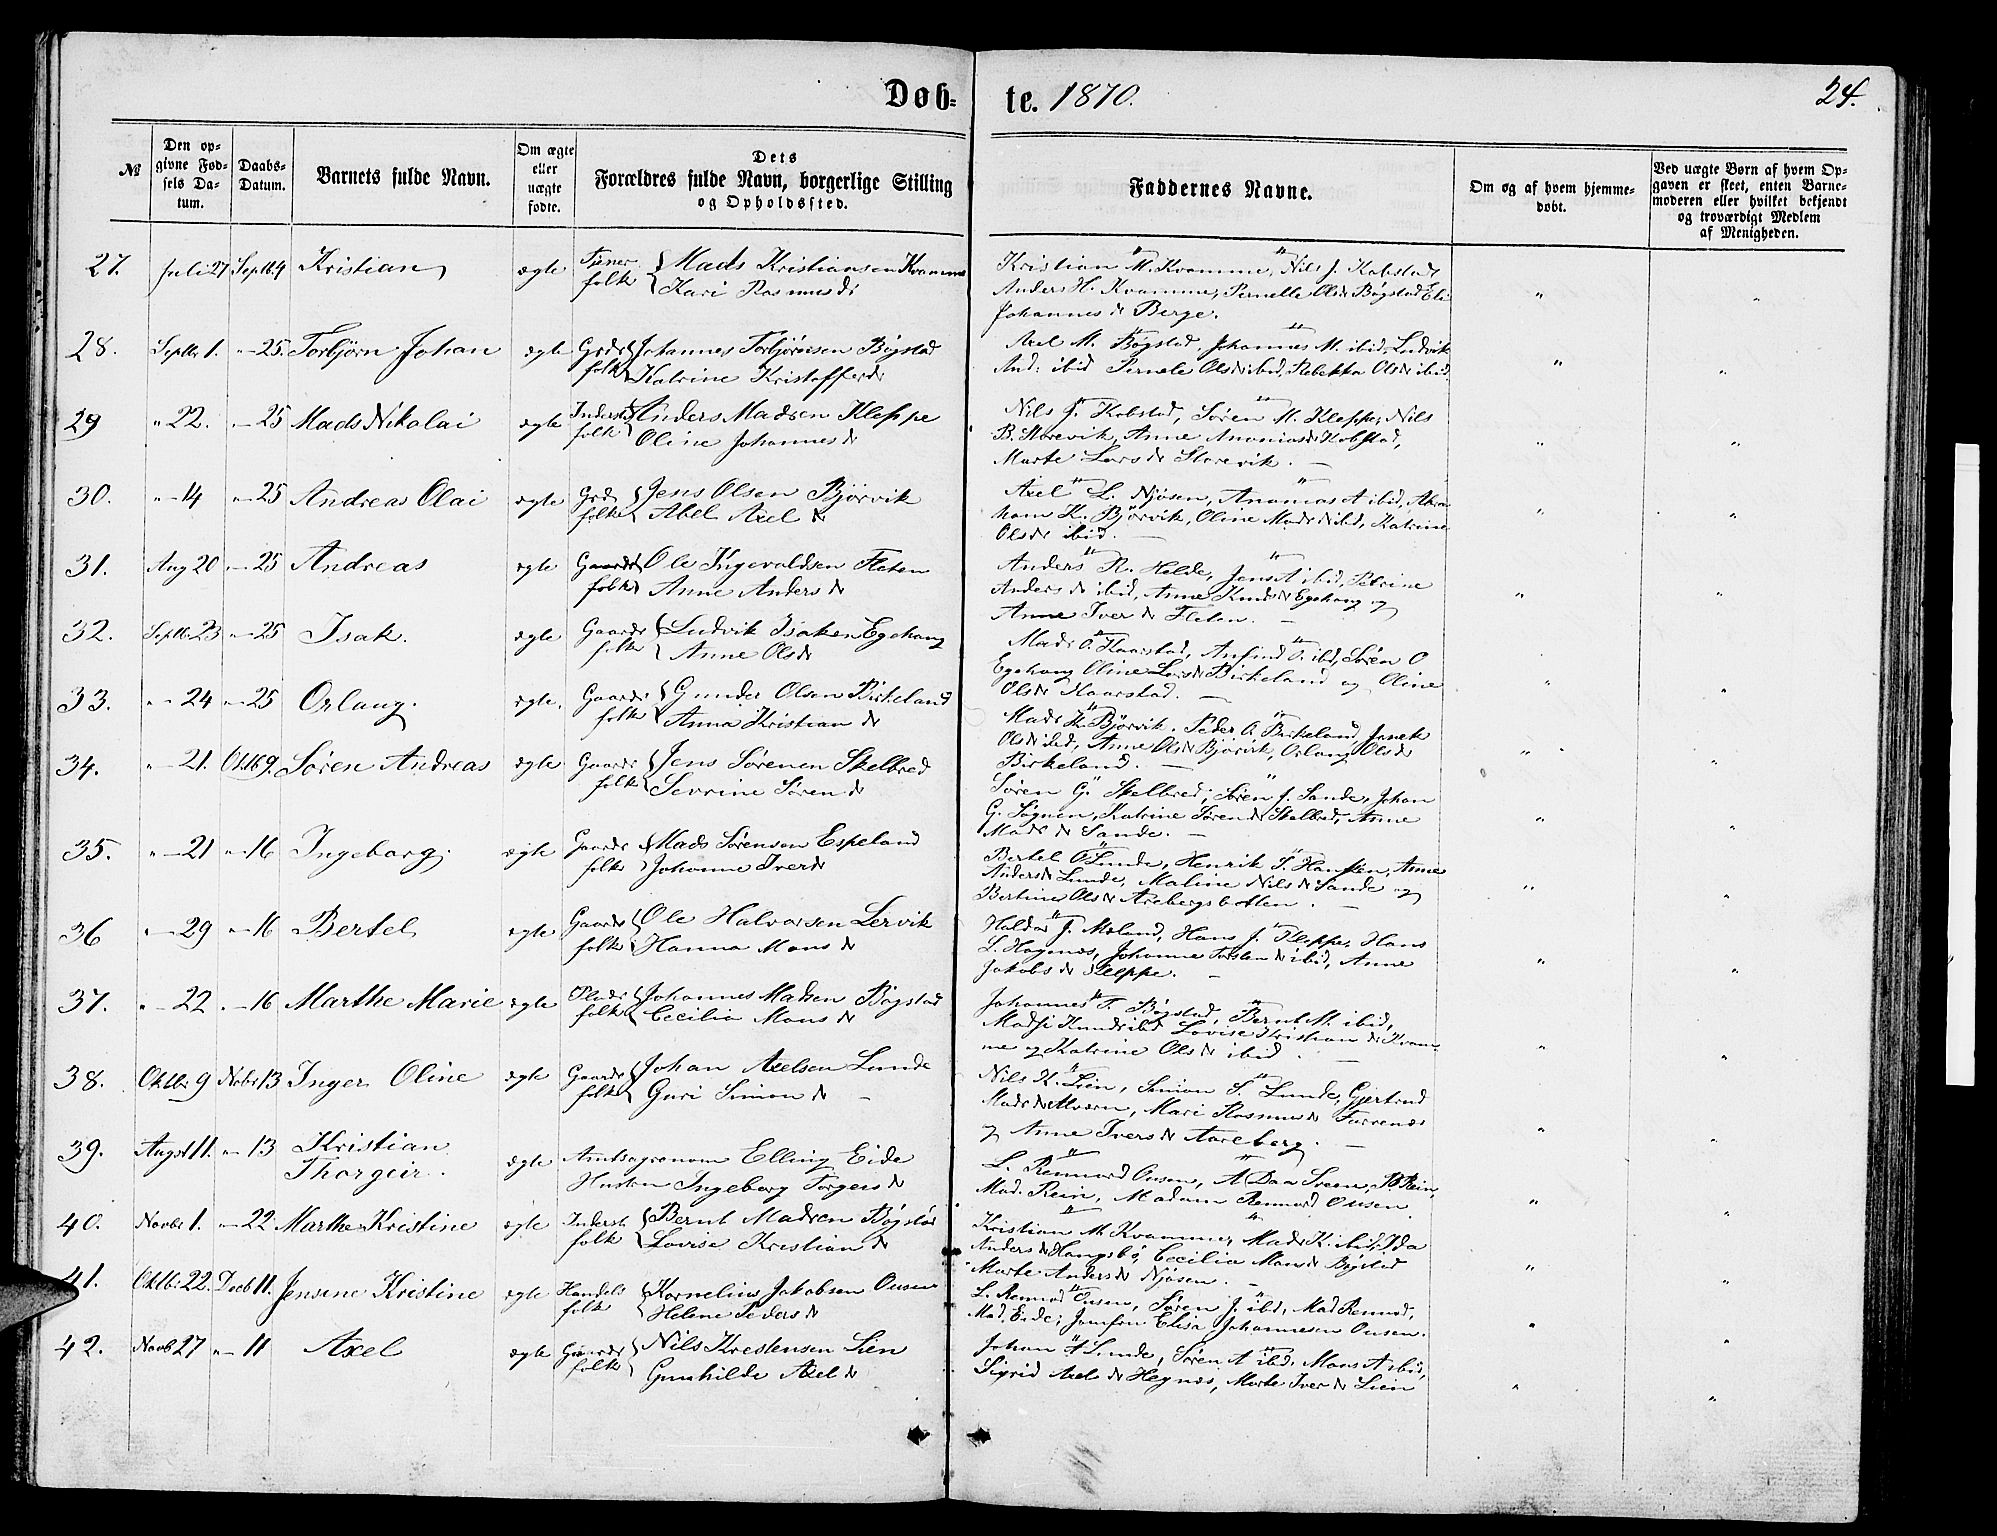 Døb-
te. 1870.
24.
№
Den opgivne Fødsels Datum.
Daabs-Datum.
Barnets fulde Navn.
Om ægte eller uægte fødte.
Dets Forældres fulde Navn, borgerlige Stilling og Opholdssted.
Faddernes Navne.
Om og af hvem hjemmedøbt.
Ved uægte Børn af hvem Opgaven er skeet, enten Barnemoderen eller hvilket bekjendt og troværdigt Medlem af Menigheden.
27. Juli 27 Septb. 4 Kristian ægte Tjenerfolk Mads Kristiansen Kvamme
Kari Rasmusdr
Kristian M. Kvamme, Nils J. Kobstad,
Anders H. Kvamme, Pernelle Olsdr Bøgstad, Eli
Johannesdr Berge.
28. Septbr 1. " 25. Torbjørn Johan ægte Grdrfolk Johannes Torbjørnsen Bøgstad
Katrine Kristofferdr
Axel M. Bøgstad, Johannes M. ibid, Ludvik
And: ibid Pernele Olsdr ibid, Rebekka Olsdr ibid.
29 " 22. " 25 Mads Nikolai ægte Inderstfolk Anders Madsen Kleppe
Oline Johannesdr
Nils J. Kobstad, Søren M. Kleppe, Nils
B. Storevik, Anne Ananiasdr Kobstad,
Marte Larsdr Storevik.
30. " 14 " 25 Andreas Olai ægte Grdfolk Jens Olsen Bjørvik
Abel Axeldr
Axel L. Njøsen, Ananias A ibid, Abraham
K. Bjørvik, Oline Madsdr ibid, Katrine
Olsdr ibid.
31. Aug 20 " 25 Andreas ægte Gaardrfolk Ole Ingevaldsen Fleten
Anne Andersdr
Anders R. Helde, Jens A ibid, Petrine
Andersdr ibid, Anne Knudsdr Egehaug og
Anne Iverdr Fleten.
32. Septb. 23 " 25 Isak. ægte Gaardrfolk Ludvik Isaksen Egehaug
Anne Olsdr
Mads O. Haarstad, Anfind O. ibid, Søren O
Egehaug Oline Larsdr Birkeland og Oline
Olsdr Haarstad.
33. " 24 " 25 Orlaug. ægte. Gaardrfolk Gunder Olsen Birkeland
Anna Kristiandr
Mads K. Bjørvik. Peder O. Birkeland,
Olsdr ibid, Anne Olsdr Bjørvik, Orlaug Olsdr
Birkeland.
34. " 21. Oktb 9. Søren Andreas ægte Gaardrfolk Jens Sørensen Skelbred
Sevrine Sørendr
Søren G. Skelbred, Søren J. Sande, Johan
G. Sognen, Katrine Sørendr Skelbred, Anne
Madsdr Sande.
35. " 21 " 16 Ingeborg. ægte Gaardrfolk Mads Sørensen Espeland
Johanne Iverdr
Bertel O Lunde, Henrik T. Hansen, Anne
Andersdr Lunde, Maline Nilsdr Sande og
Bertine Olsdr Aarebergsbotten.
36 " 29 " 16 Bertel ægte Gaardrfolk Ole Halvorsen Lervik
Hanna Monsdr
Haldor J. Moland, Hans J. Kleppe, Hans
L. Hognæs, Johanne Torstendr ibid, Anne
Jakobsdr Kleppe.
37. " 22 " 16 Marthe Marie ægte Pladsfolk Johannes Madsen Bøgstad
Cecilia Monsdr
Johannes T. Bøgstad, Bernt M. ibid,
Madsi Knudsibid Lovise Kristiandr Kvamme
og Katrine Olsdr ibid.
38. Oktbr 9 Nobr 13 Inger Oline ægte Gaardrfolk Johan Axelsen Lunde
Guri Simondr
Nils K. Lien, Simon S. Lunde, Gjertrud
Madsdr Alværn, Mari Rasmusdr Furrenes
og Anne Iversdr Aareberg.
39. Augst 11. " 13 Kristian
Thorgeir. ægte Amtsagronom Elling Eide
Hustru Ingeborg Torgersdr
L. Rennord Ousen, A Daa Sveen, B. Rein,
Mad. Rein, Madam Rennord Ousen
40. Novbr 1. " 22 Marthe Kristine ægte Inderstfolk Bernt Madsen Bøgstad
Lovise Kristiandr
Kristian M. Kvamme, Mads K. ibid, Ida
Andersdr Haugsbø, Cecilia Monsdr Bøgstad
Marte Andersdr Njøsen.
41. Oktb. 22. Decb 11. Jensine Kristine ægte Handelsfolk Kornelius Jakobsen Ousen
Helene Pedersdr
L. Rennord Ousen, Søren J. ibid, Mad Rennord,
Mad. Eide, Jomfru Elisa Johannesen Ousen.
42. Novb 27 " 11 Axel ægte Gaardrfolk Nils Krestensen Lien
Gunhilde Axeldr
Johan A Lunde, Søren A ibid, Mons A ibid,
Sigrid Axelsdr Hegnæs, Marte Iverdr Lien